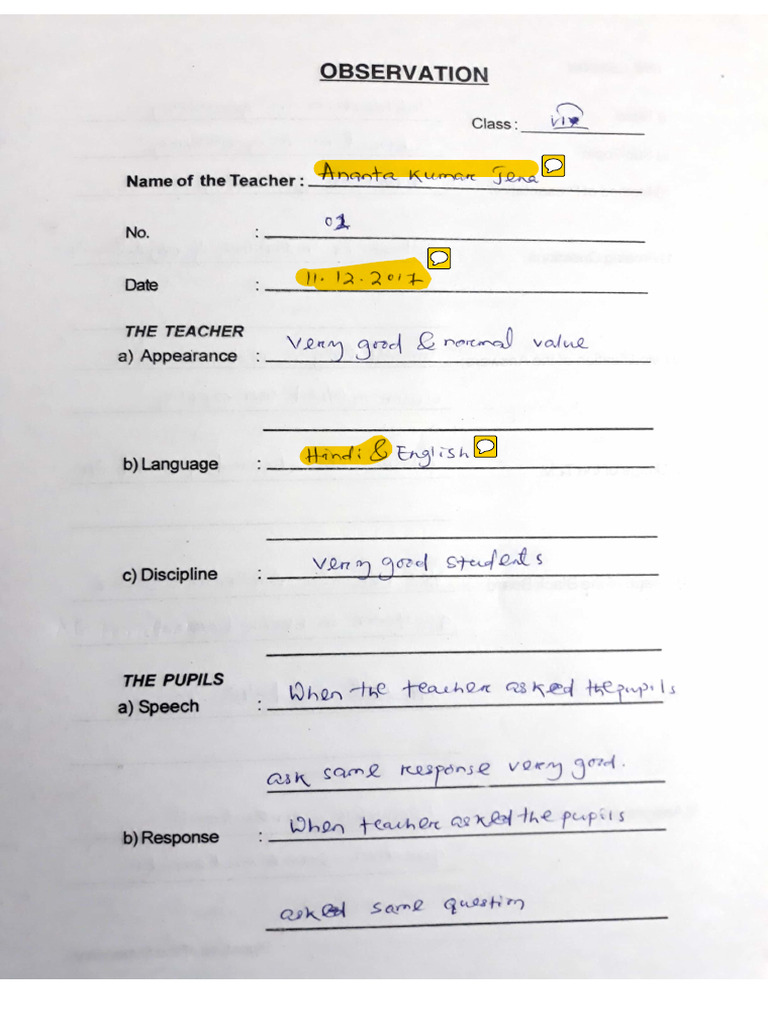 OBSERVATION
Class :
Name of the Teacher : Ananta Kumar Jena
No. : 01
Date : 11.12.2017
THE TEACHER
a) Appearance : Very good & normal value
b) Language : Hindi & English
c) Discipline : Very good students
THE PUPILS
a) Speech : When the teacher asked the pupils
ask same response very good.
b) Response : When teacher asked the pupils
asked same question